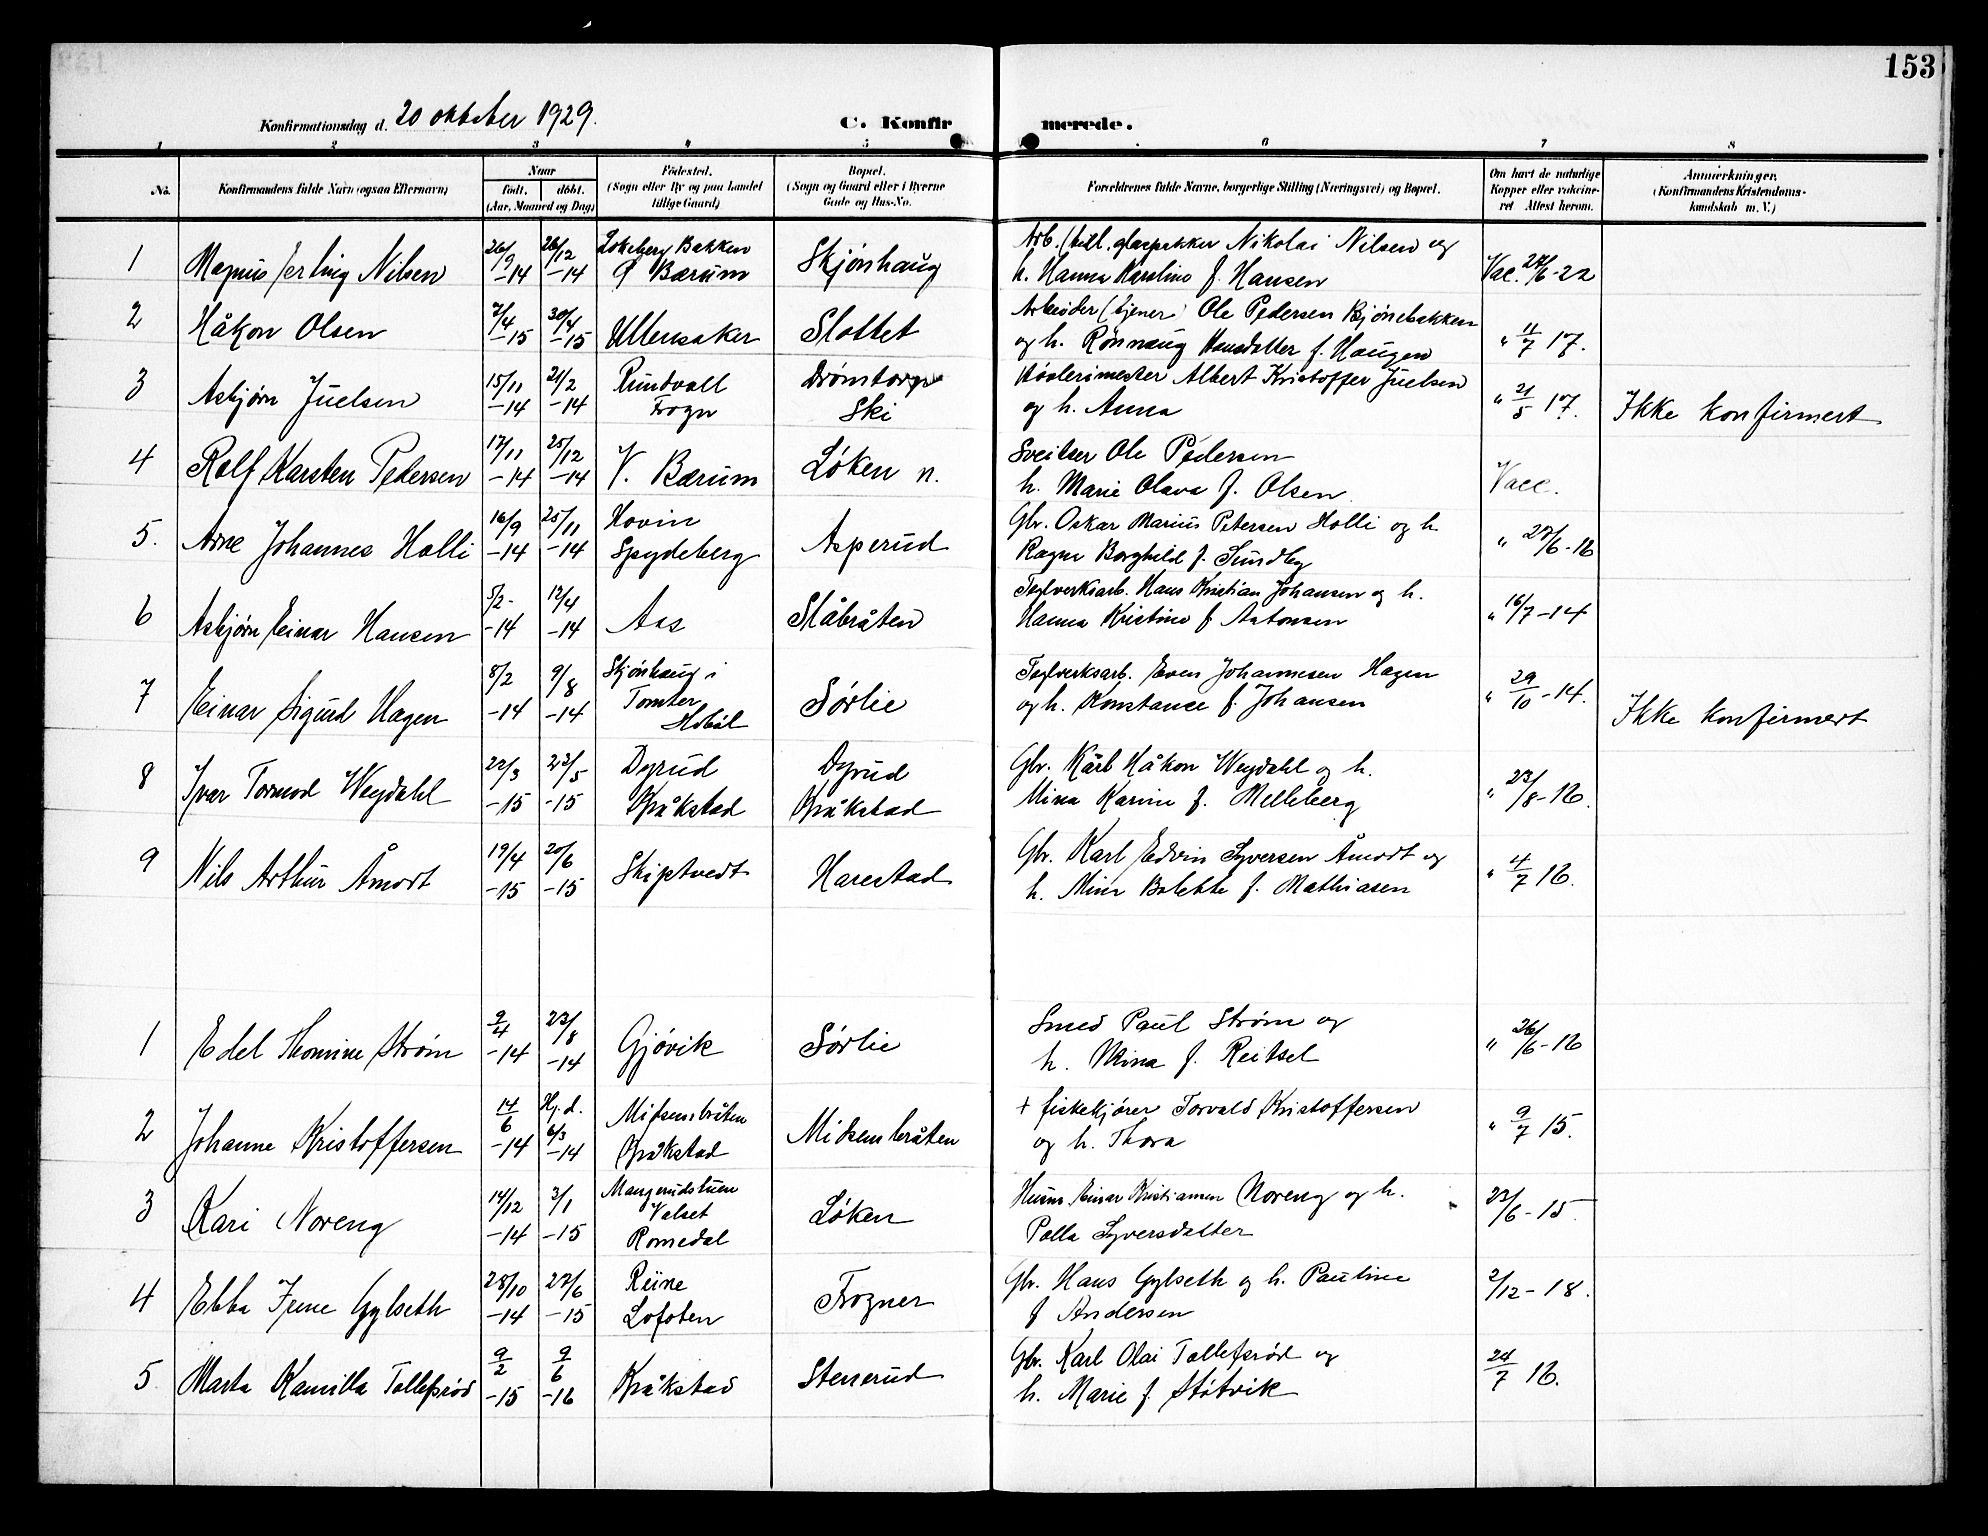 153
Konfirmationsdag d. 20 oktober 1929.
C. Konfirmerede.
1 2 3 4 5 6 7 8
No.
Konfirmandens fulde Navn (ogsaa Efternavn)
Naar
født, døbt.
(Aar, Maaned og Dag)
Fødested.
(Sogn eller By og paa Landet
tillige Gaard)
Bopæl.
(Sogn og Gaard eller i Byerne
Gade og Hus-No.
Forældrenes fulde Navne, borgerlige Stilling (Næringsvei) og Bopæl.
Om havt de naturlige
Kopper eller vakcine-
ret Attest herom.
Anmerkninger,
(Konfirmandens Kristendoms-
kundskab m. V.)
1 Magnus Erling Nilsen 26/9 -14 26/12 -14 Bakken
Bærum Skjønhaug Arb. glaspakker Nikolai Nilsen og
h. Hanna Karoline f. Hansen Vac. -22
2 Håkon Olsen 7/4 -15 30/4 -15 Ullensaker Slottet Arbeider (tjener) Ole Pedersen Bjønebakken
og h. Rønnaug Hansdatter f. Haugen " 11/7 17.
3 Asbjørn Juelsen 15/11 -14 21/2 -14 Rundvoll
Frogn Drømtorp
Ski Høvlerimester Albert Kristoffer Juelsen
og h. Anna " 21/5 17. Ikke konfirmert
4 Rolf Karsten Pedersen 17/11 -14 25/12 -14 V. Bærum Løken n. Sveitser Ole Pedersen
h. Marie Olava f. Olsen Vacc.
5. Arne Johannes Holli 16/9 -14 25/11 -14 Hovin
Spydeberg Asperud Gbr. Oskar Marius Petersen Holli og h.
Ragna Borghild f. Sundby " 27/6-16
6 Asbjørn Einar Hansen 5/2 -14 12/4 -14 Aas Slåbråten Teglverksarb. Hans Kristian Johansen og h.
Hanna Kristine f Antonsen " 16/7-14
7 Einar Sigurd Hagen 8/2 -14 9/8 -14 Skjønhaug i
Tomter
Hobøl Sørlie Teglverksarb. Even Johannesen Hagen
og h. Konstance f. Johansen " 29/10-14. Ikke konfirmert
8 Ivar Tormod Weydahl 22/3 -15 23/5 -15 Dyrud
Kråkstad Dyrud
Kråkstad Gbr. Karl Håkon Weydahl og h.
Mina Karine f. Melleberg " 23/8-16.
9 Nils Arthur Åmodt 19/4 -15 20/6 -15 Skiptvedt Harestad Gbr. Karl Edvin Syversen Åmodt og
h. Mina Bolette f. Mathiasen " 4/7 16.
1 Edel Thomine Strøm 2/4 -14 23/8 -14 Gjøvik Sørlie Smed Paul Strøm og
h. Mina f. Reitsel " 26/6-16
2 Johanne Kristoffersen 14/6 -14 Hj.d. 6/3 -14
Kråkstad Miksensbråten + fiskekjører Torvald Kristoffersen
og h. Thora " 9/7 15.
3 Kari Noreng 14/12 -14 3/1 -15 Mangerudstuen
Valset
Romedal Løken Husm. Einar Kristiansen Noreng og h.
Polla Syversdatter 23/6-15.
4 Ebba Irene Gylseth 28/10 -14 27/6 -15 Reine
Lofoten Frogner Gbr. Hans Gylseth og h. Pauline
f Andersen 2/12-18.
5 Marta Kamilla Tollefsrød 9/2 -15 9/6 -16 Kråkstad Stenerud Gbr. Karl Olai Tollefsrød og
h. Marie f. Støtvik 24/7 16.